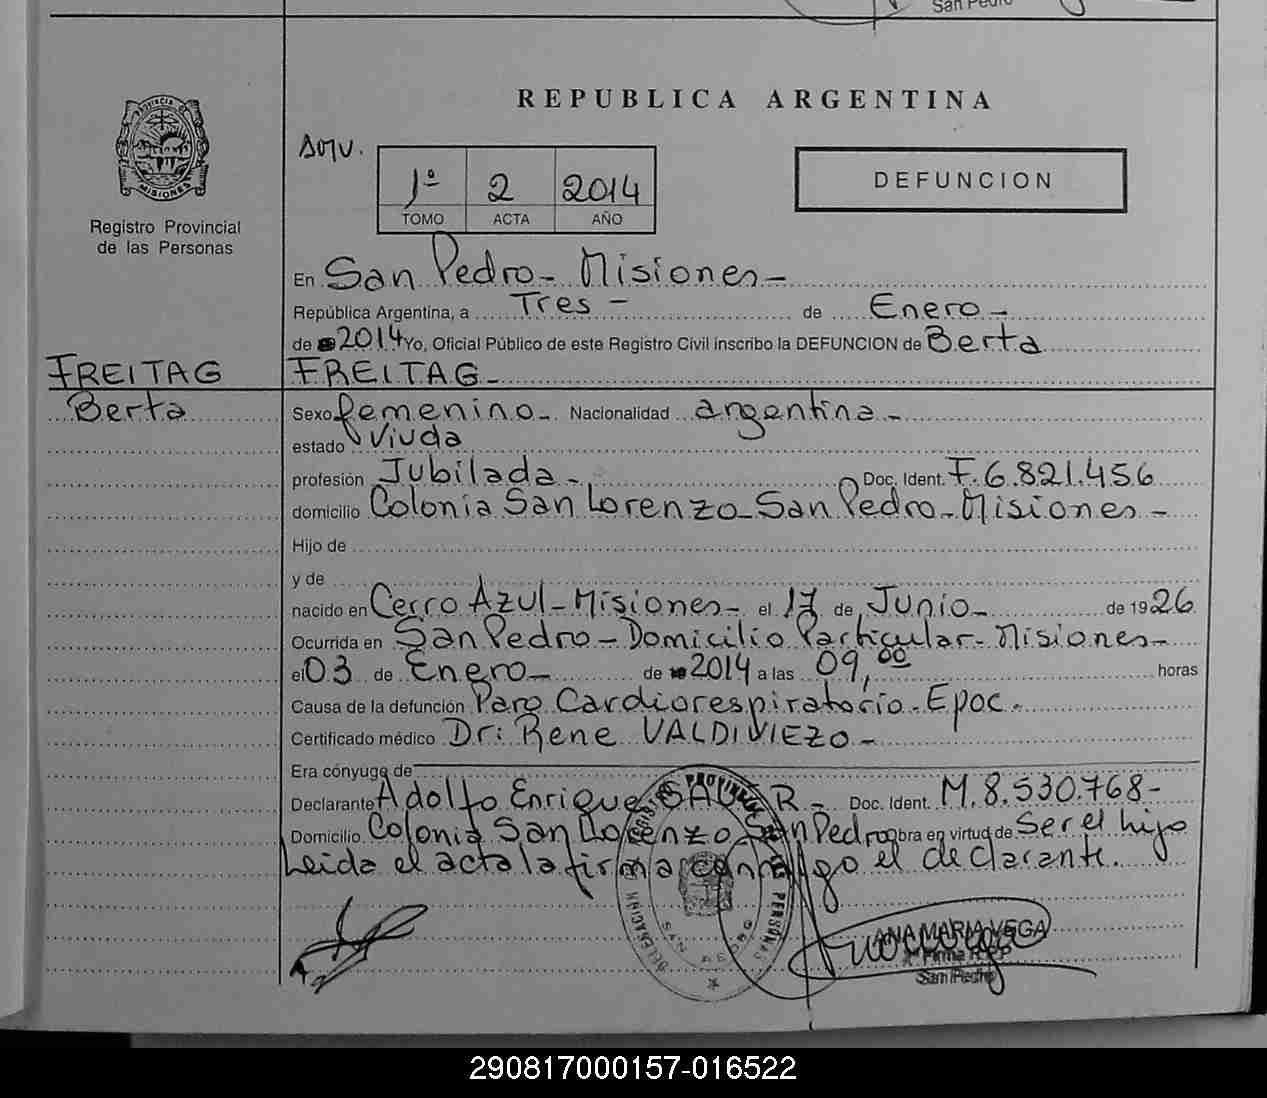 San Pedro
REPUBLICA ARGENTINA
PROVINCIA DE
MISIONES
Registro Provincial
de las Personas
1º 2 2014
TOMO ACTA AÑO
DEFUNCION
En San Pedro - Misiones -
República Argentina, a Tres - de Enero -
de 2014 Yo, Oficial Público de este Registro Civil inscribo la DEFUNCION de Berta
FREITAG FREITAG -
Berta
Sexo femenino - Nacionalidad argentina -
estado Viuda
profesión Jubilada - Doc. Ident. F. 6.821.456
domicilio Colonia San Lorenzo - San Pedro - Misiones -
Hijo de
y de
nacido en Cerro Azul - Misiones - el 17 de Junio - de 1926
Ocurrida en San Pedro - Domicilio Particular - Misiones -
el 03 de Enero - de 2014 a las 09,00 horas
Causa de la defunción Paro Cardiorespiratorio - Epoc -
Certificado médico Dr: Rene VALDIVIEZO -
Era cónyuge de
Declarante Adolfo Enrique R - Doc. Ident. M. 8.530.768 -
Domicilio Colonia San Lorenzo San Pedro obra en virtud de Ser el hijo
Leida el acta la firma conmigo el declarante.
ANA MARIA VEGA
Firma R.P.P
San Pedro
290817000157-016522